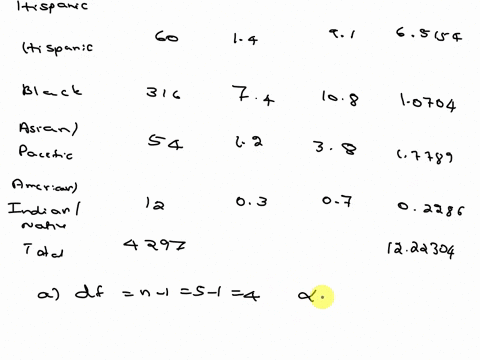 Hispanic
Hispanic 60 1.4 9.1 6.5154
Black 316 7.4 10.8 1.0704
Asian/
Pacific 54 1.2 3.8 1.7789
American/
Indian/ 12 0.3 0.7 0.2286
Native
Total 4297 12.22304
a) df = n-1 = 5-1 = 4 α